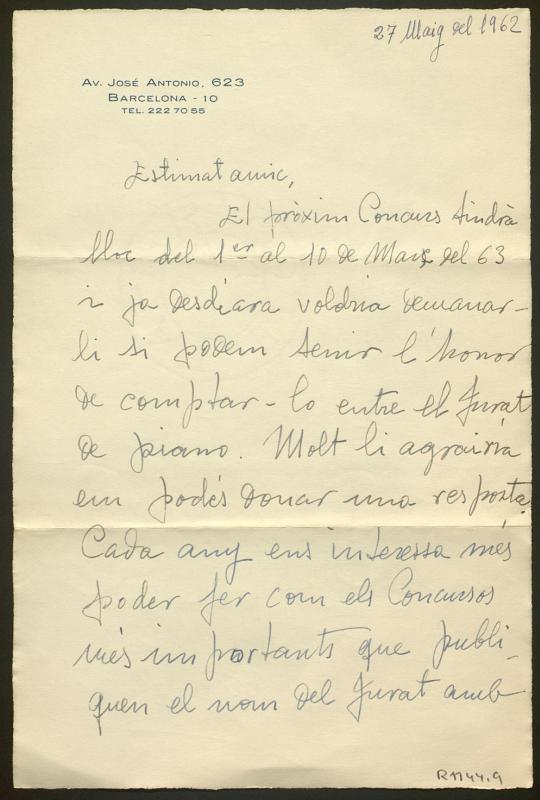 27 Maig del 1962
Av. José Antonio, 623
Barcelona - 10
Tel. 222 70 55
Estimat amic,
El pròxim Concurs tindrà
lloc del 1er al 10 de Març del 63
i ja desd'ara voldria demanar-
li si podem tenir l'honor
de comptar-lo entre el Jurat
de piano. Molt li agrairia
em podés donar una resposta.
Cada any ens interessa més
poder fer com els Concursos
més importants que publi-
quen el nom del Jurat amb
R1144.9